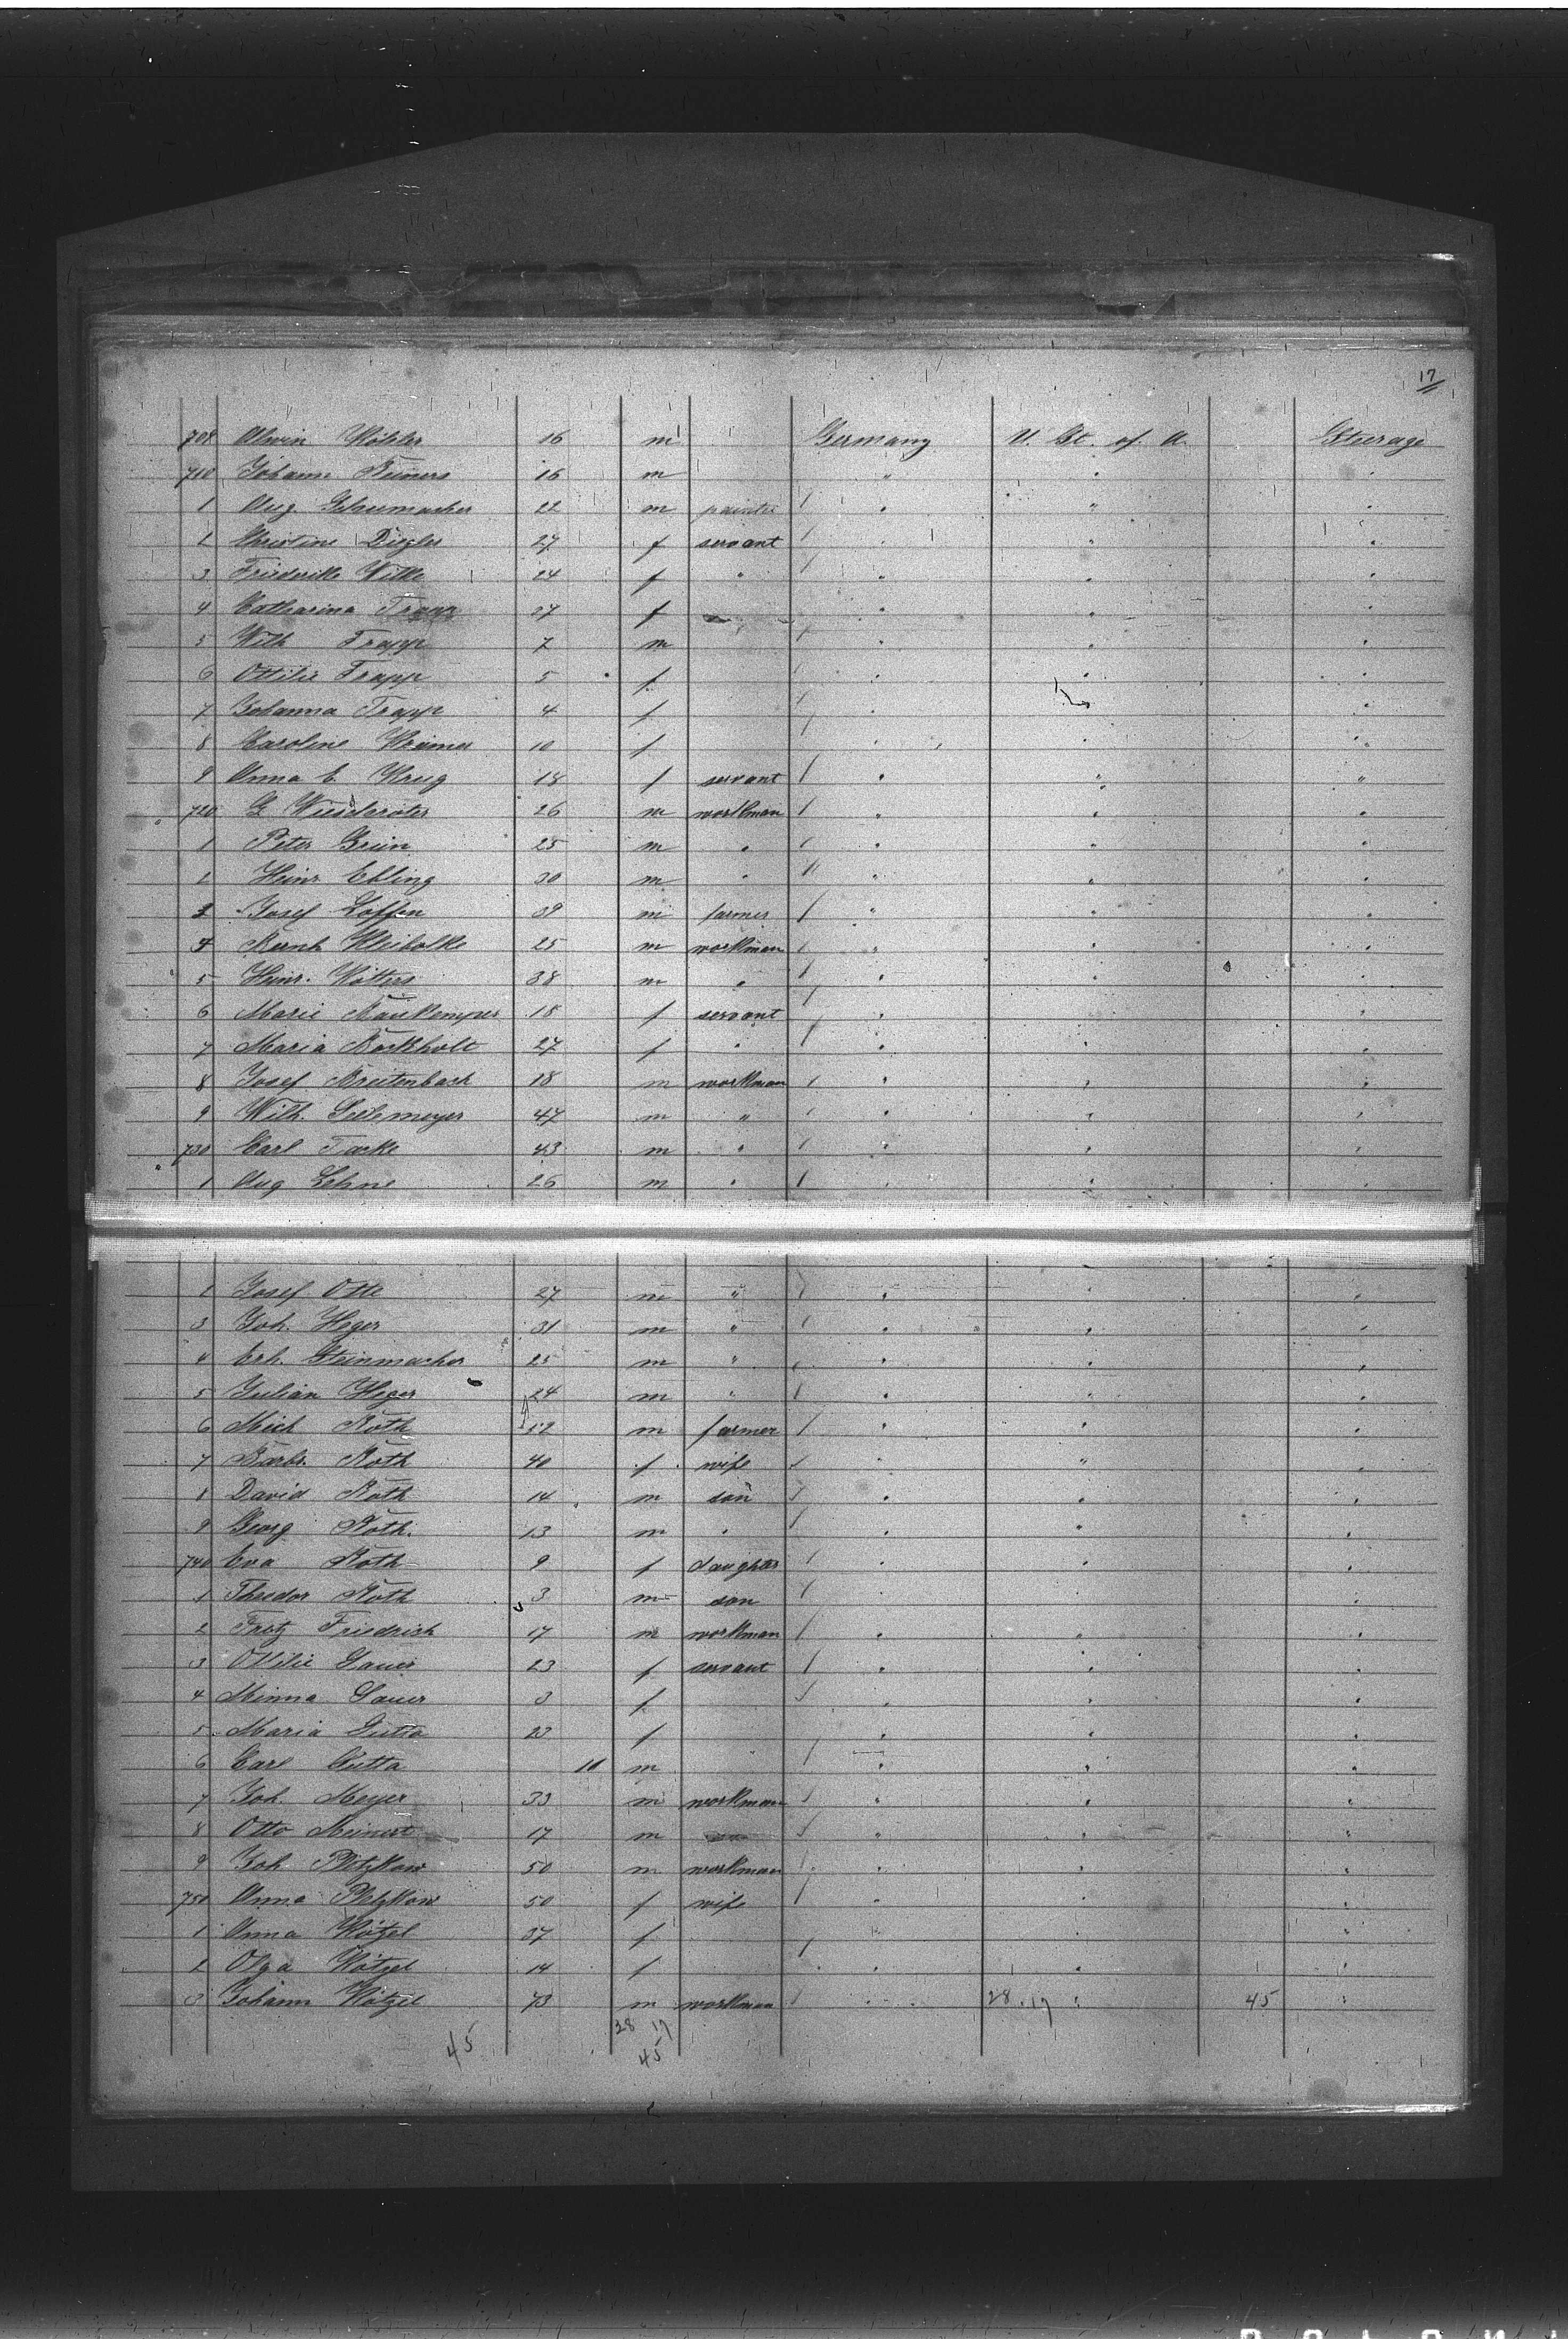 17
709 Alwin Köhler 16 m Germany U. St. of A. Steerage
710 Johann Reiners 16 m " " "
1 Aug. Schumacher 22 m painter " " "
2 Christine Diegler 27 f servant " " "
3 Friederike Wille 24 f " " " "
4 Catharina Trapp 37 f " " "
5 Wilh Trapp 7 m " " "
6 Ottilie Trapp 5 f " " "
7 Johanna Trapp 4 f " " "
8 Caroline Krämer 10 f " " "
9 Anna C. Krug 18 f servant " " "
720 G. 26 m workman " " "
1 Peter Grün 25 m " " " "
2 Heinr Ebling 30 m " " " "
3 Josef Loffen 39 m farmer " " "
4 Bernh 25 m workman " " "
5 Heinr. Kötters 38 m " " " "
6 Marie Baukemper 18 f servant " " "
7 Maria Bockholt 27 f " " " "
8 Josef Breitenbach 18 m workman " " "
9 Wilh. Seelemeyer 47 m " " " "
730 Carl Tacke 43 m " " " "
1 Aug Lehne 26 m " " " "
2 Josef Otte 27 m " " " "
3 Joh. Heger 31 m " " " "
4 Erh. Steinmacher 25 m " " " "
5 Julian Heger 24 m " " " "
6 Mich Roth m farmer " " "
7 Barb. Roth 40 f wife " " "
8 David Roth 14 m son " " "
9 Georg Roth. 13 m " " " "
740 Eva Roth 9 f daughter " " "
1 Theodor Roth 3 m son " " "
2 Fritz Friedrich 17 m workman " " "
3 Ottilie Sauer 23 f servant " " "
4 Minna Sauer 3 f " " "
5 Maria Gutta 23 f " " "
6 Carl Gutta m " " "
7 Joh. Meyer 33 m workman " " "
8 Otto Meinert 17 m " " "
9 Joh Pletzkow 50 m workman " " "
750 Anna Pletzkow 50 f wife " " "
1 Anna Kötzel 37 f " " "
2 Olga Kötzel 14 f " " "
3 Johann Kötzel 73 m workman " 28.17 " 45 "
45 28 17
45